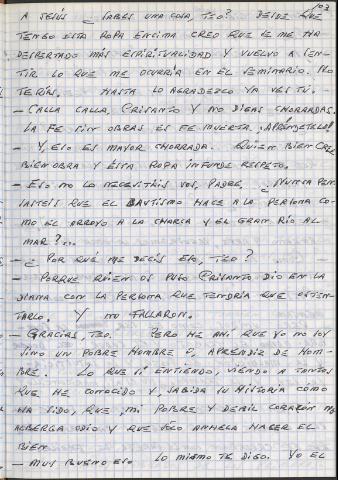 103
A JESÚS ¿ SABES UNA COSA, TEO? DESDE QUE
TENGO ESTA ROPA ENCIMA CREO QUE SE ME HA
DESPERTADO MÁS ESPIRITUALIDAD Y VUELVO A SEN-
TIR LO QUE ME OCURRÍA EN EL SEMINARIO. NO
TE RÍAS. HASTA LO AGRADEZCO YA VES TÚ.
- CALLA CALLA, CRISANTO Y NO DIGAS CHORRADAS.
LA FE SIN OBRAS ES FE MUERTA. ¡APRÓNETELO!
- Y, ESO ES MAYOR CHORRADA. QUIEN BIEN CREE
BIEN OBRA Y ÉSTA ROPA INFUNDE RESPETO.
- ESO NO LO NECESITÁIS VOS, PADRE. ¿ NUNCA PEN-
SASTEIS QUE EL BAUTISMO HACE A LA PERSONA CO-
MO EL ARROYO A LA CHARCA Y EL GRAN RÍO AL
MAR?...
- ¿ POR QUE ME DECÍS ESO, TEO?
- PORQUE QUIEN OS PUSO CRISANTO DIO EN LA
DIANA CON LA PERSONA QUE TENDRÍA QUE OSTEN-
TARLO. Y NO FALLARON.
- GRACIAS, TEO. PERO HE AHÍ QUE YO NO SOY
SINO UN POBRE HOMBRE O, APRENDIZ DE HOM-
BRE. LO QUE SÍ ENTIENDO, VIENDO A TONTOS
QUE HE CONOCIDO Y, SABIDA SU HISTORIA COMO
HA SIDO, QUE, MI POBRE Y DEBIL CORAZON NO
ALBERGA ODIO Y QUE SÓLO ANHELA HACER EL
BIEN.
- MUY BUENO ESO LO MISMO TE DIGO. YO EL